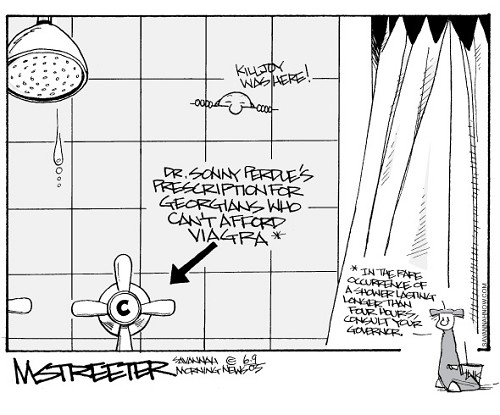 KILLJOY
WAS HERE!
DR. SONNY PERDUE'S
PRESCRIPTION FOR
GEORGIANS WHO
CAN'T AFFORD
VIAGRA*
C
* IN THE RARE
OCCURRENCE OF
A SHOWER LASTING
LONGER THAN
FOUR HOURS,
CONSULT YOUR
GOVERNOR.
SAVANNAHNOW.COM
INK
MSTREETER
SAVANNAH © 6.9
MORNING NEWS 05